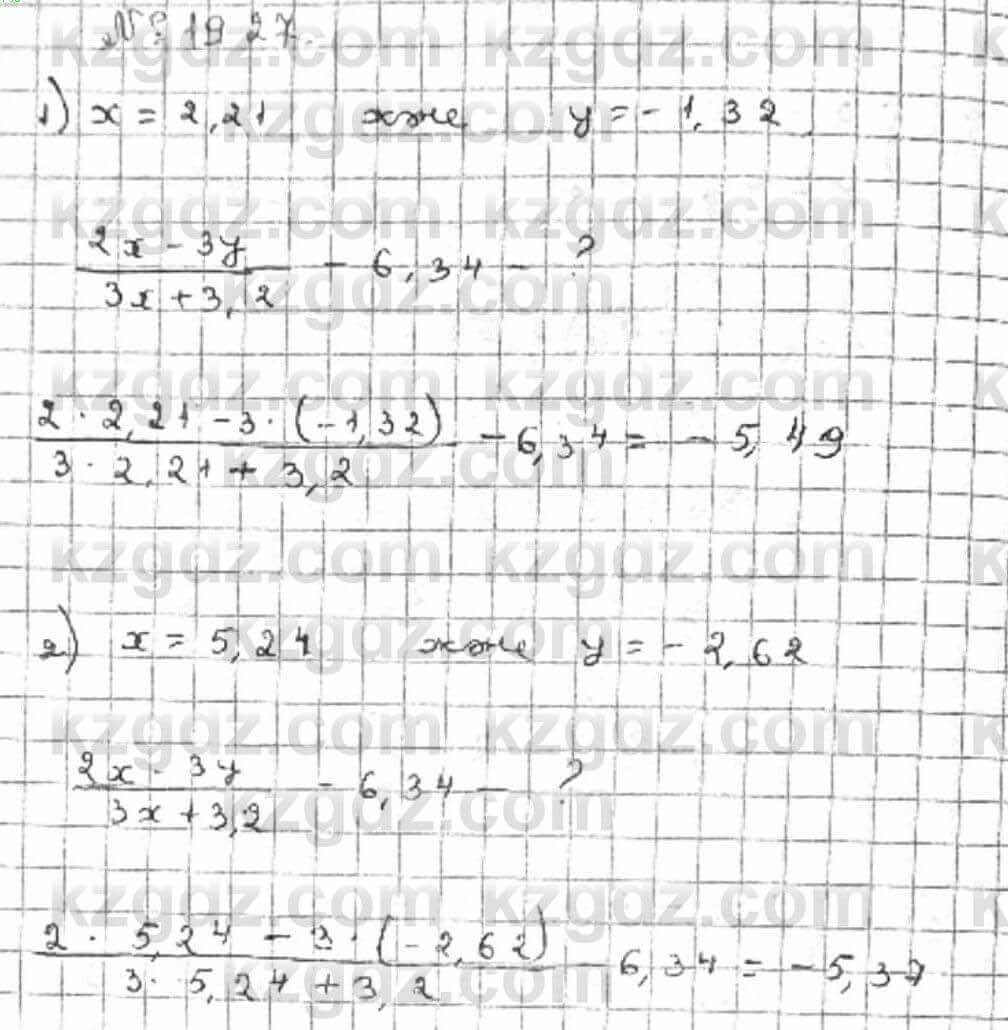 № 19 27
1) x = 2,21 және y = - 1,32
2x - 3y / 3x + 3,2 - 6,34 - ?
2 · 2,21 - 3 · (-1,32) / 3 · 2,21 + 3,2 - 6,34 = - 5,49
2) x = 5,24 және y = - 2,62
2x - 3y / 3x + 3,2 - 6,34 - ?
2 · 5,24 - 3 · (-2,62) / 3 · 5,24 + 3,2 - 6,34 = - 5,37
kzgdz.com